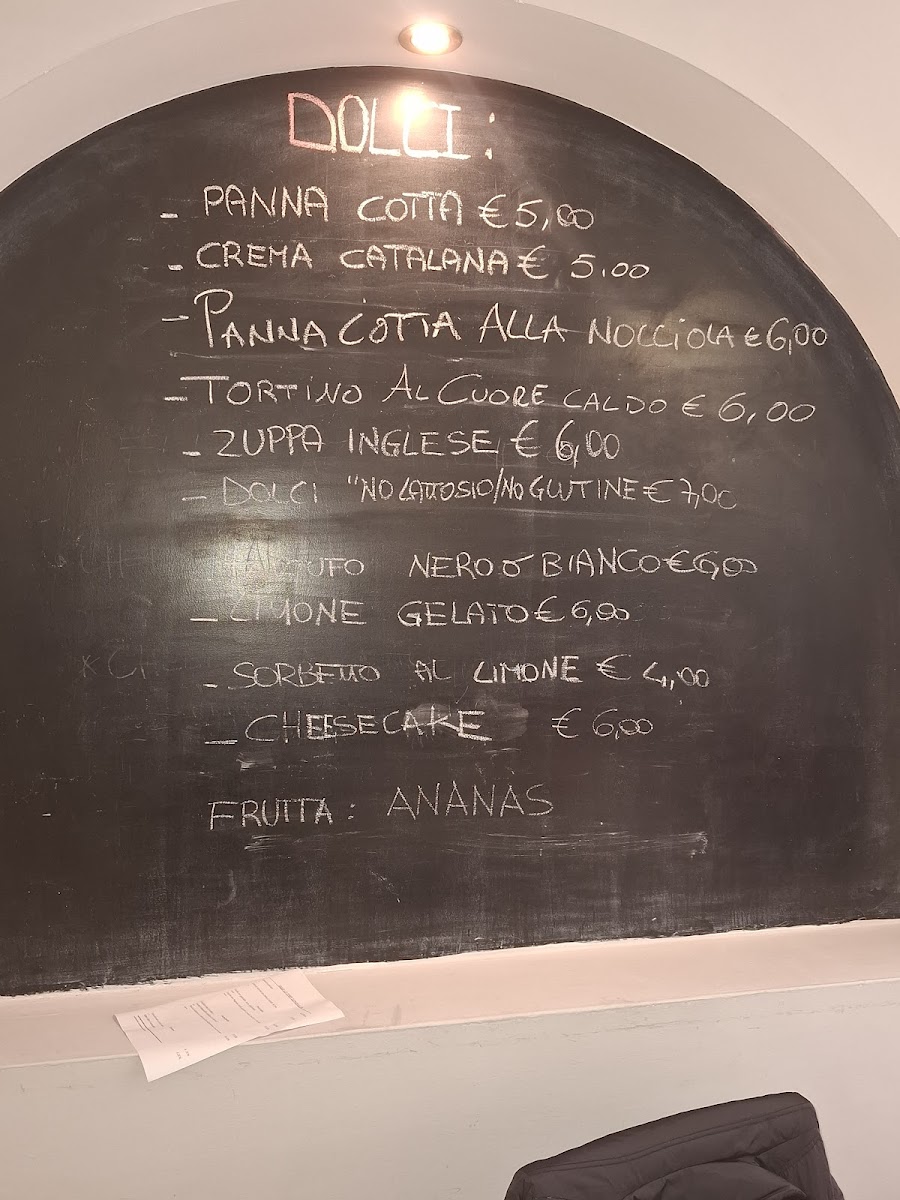 DOLCI:
- PANNA COTTA € 5,00
- CREMA CATALANA € 5.00
- PANNA COTTA ALLA NOCCIOLA € 6,00
- TORTINO AL CUORE CALDO € 6,00
- ZUPPA INGLESE € 6,00
- DOLCI "NO LATTOSIO/NO GLUTINE € 7,00
TARTUFO NERO O BIANCO € 6,00
- LIMONE GELATO € 6,00
- SORBETTO AL LIMONE € 4,00
- CHEESECAKE € 6,00
FRUTTA: ANANAS